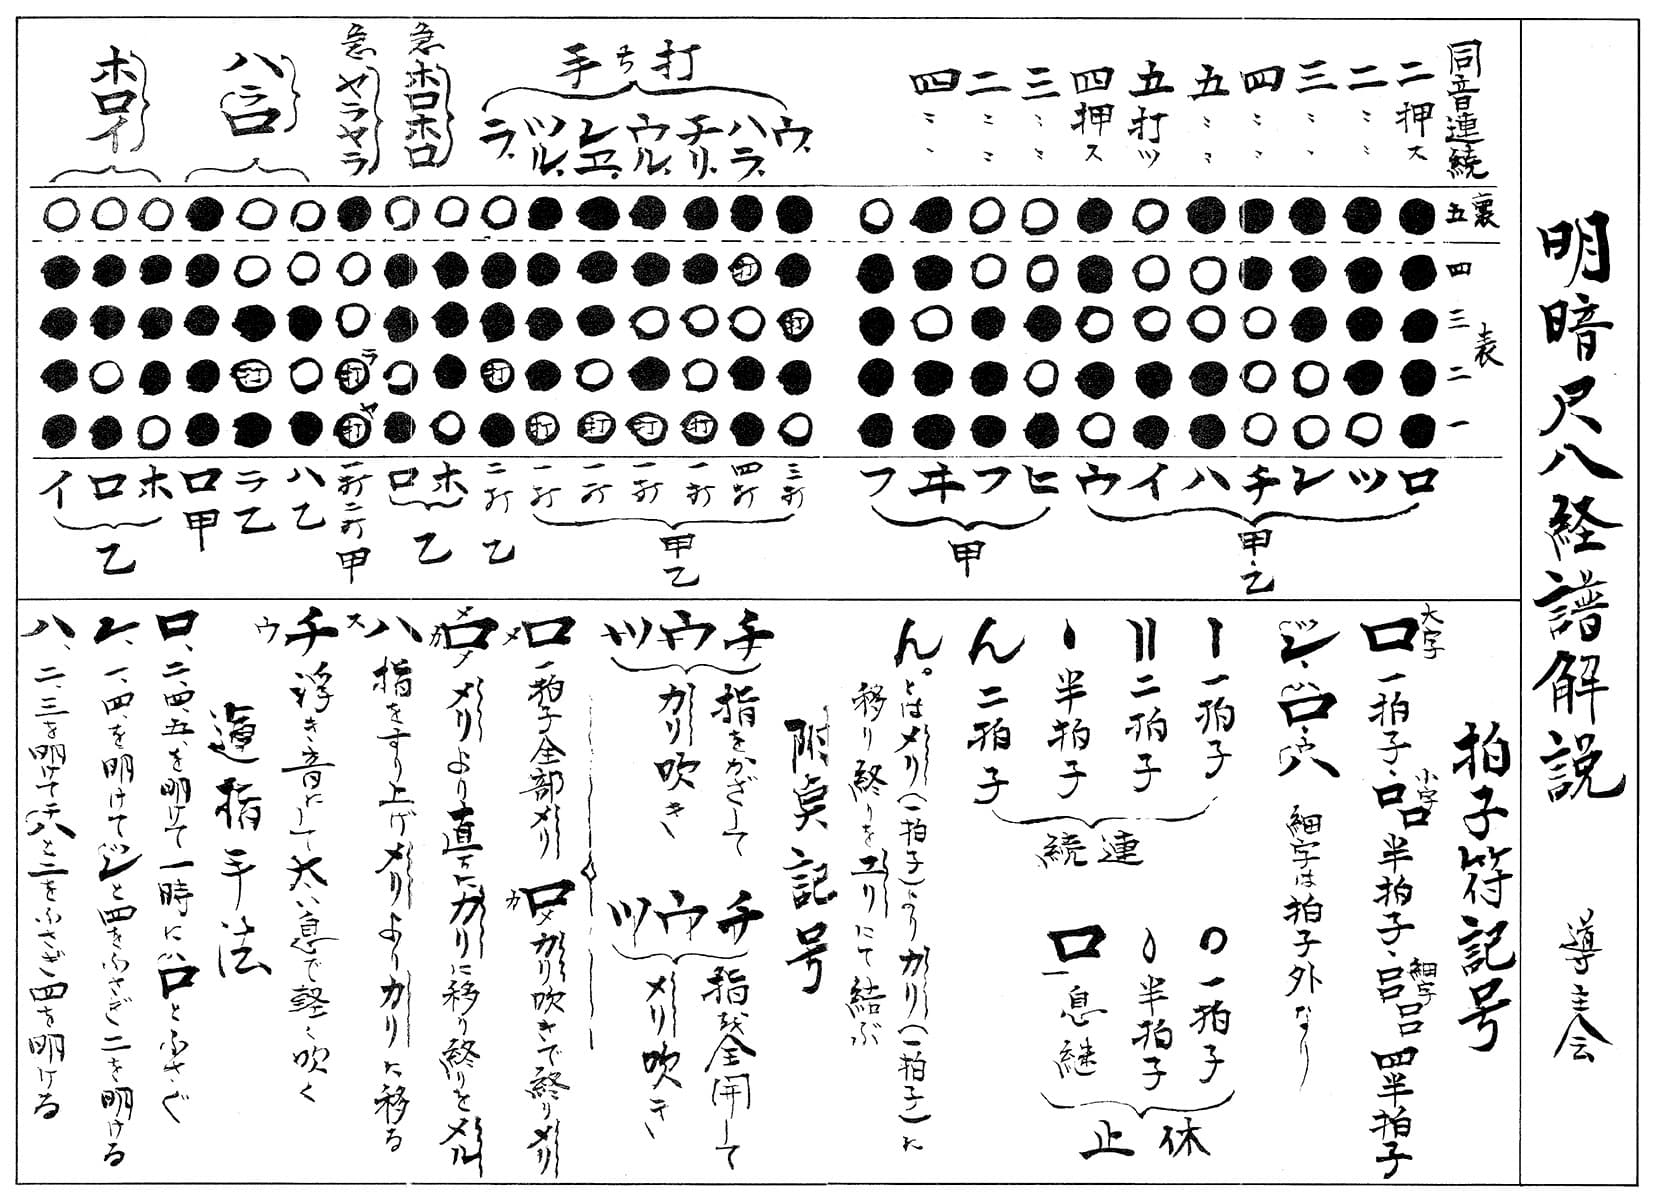 明暗尺八経譜解説
導主会
同音連続
二押ス
二〃〃
三〃〃
四〃〃
五〃〃
五打ツ
四押ス
三〃〃
二〃〃
四〃〃
打ち手
ウ、
ハラ、
チリ、
ウル、
レヱ、
ツル、
ラ、
急ホロホロ
急ヤラヤラ
ハラロ
ホロイ
裏
五
表
四
三
二
一
打
打
打
打
打
打
打
打
ラ
打
ヤ
打
ロ
ツ
レ
チ
ハ
イ
ウ
甲乙
ヒ
フ
ヰ
フ
甲
三打
四打
一打
一打
一打
一打
甲乙
二打
乙
ホ
ロ
乙
一打二打甲
ハ乙
ラ乙
ロ甲
ホ
ロ
イ
乙
拍子符記号
大字
ロ一拍子、
小字
ロロ半拍子、
細字
四半拍子
細字は拍子外なり
一拍子
二拍子
半拍子
ん二拍子
連続
一拍子
半拍子
ロ一息継
休止
ん。とはメリ(一拍子)よりカリ(一拍子)に
移り終りをユリにて結ぶ
附点記号
チウツ
指をかざして
カリ吹き
チウツ
指を全開して
メリ吹き
メ
ロ一拍子全部メリ
カ
ロメカリ吹きで終りメリ
メリより直ちにカリに移り終りをメル
ス
ハ指をすり上げメリよりカリに移る
ウ
チ浮き音にして太い息で軽く吹く
運指手法
ロ、二、四、五、を明けて一時にロとふさぐ
レ、一、四、を明けてと四をふさぎ二を明ける
ハ、二、三を明けてと二をふさぎ四を明ける